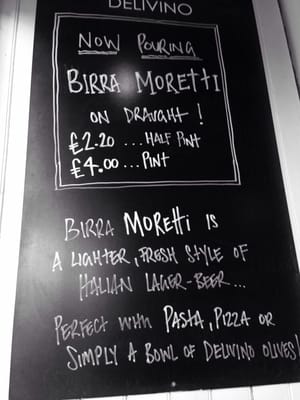 DELIVINO
NOW POURING
BIRRA MORETTI
ON DRAUGHT!
£2.20 ... HALF PINT
£4.00 ... PINT
BIRRA MORETTI IS
A LIGHTER, FRESH STYLE OF
ITALIAN LAGER-BEER...
PERFECT WITH PASTA, PIZZA OR
SIMPLY A BOWL OF DELIVINO OLIVES!